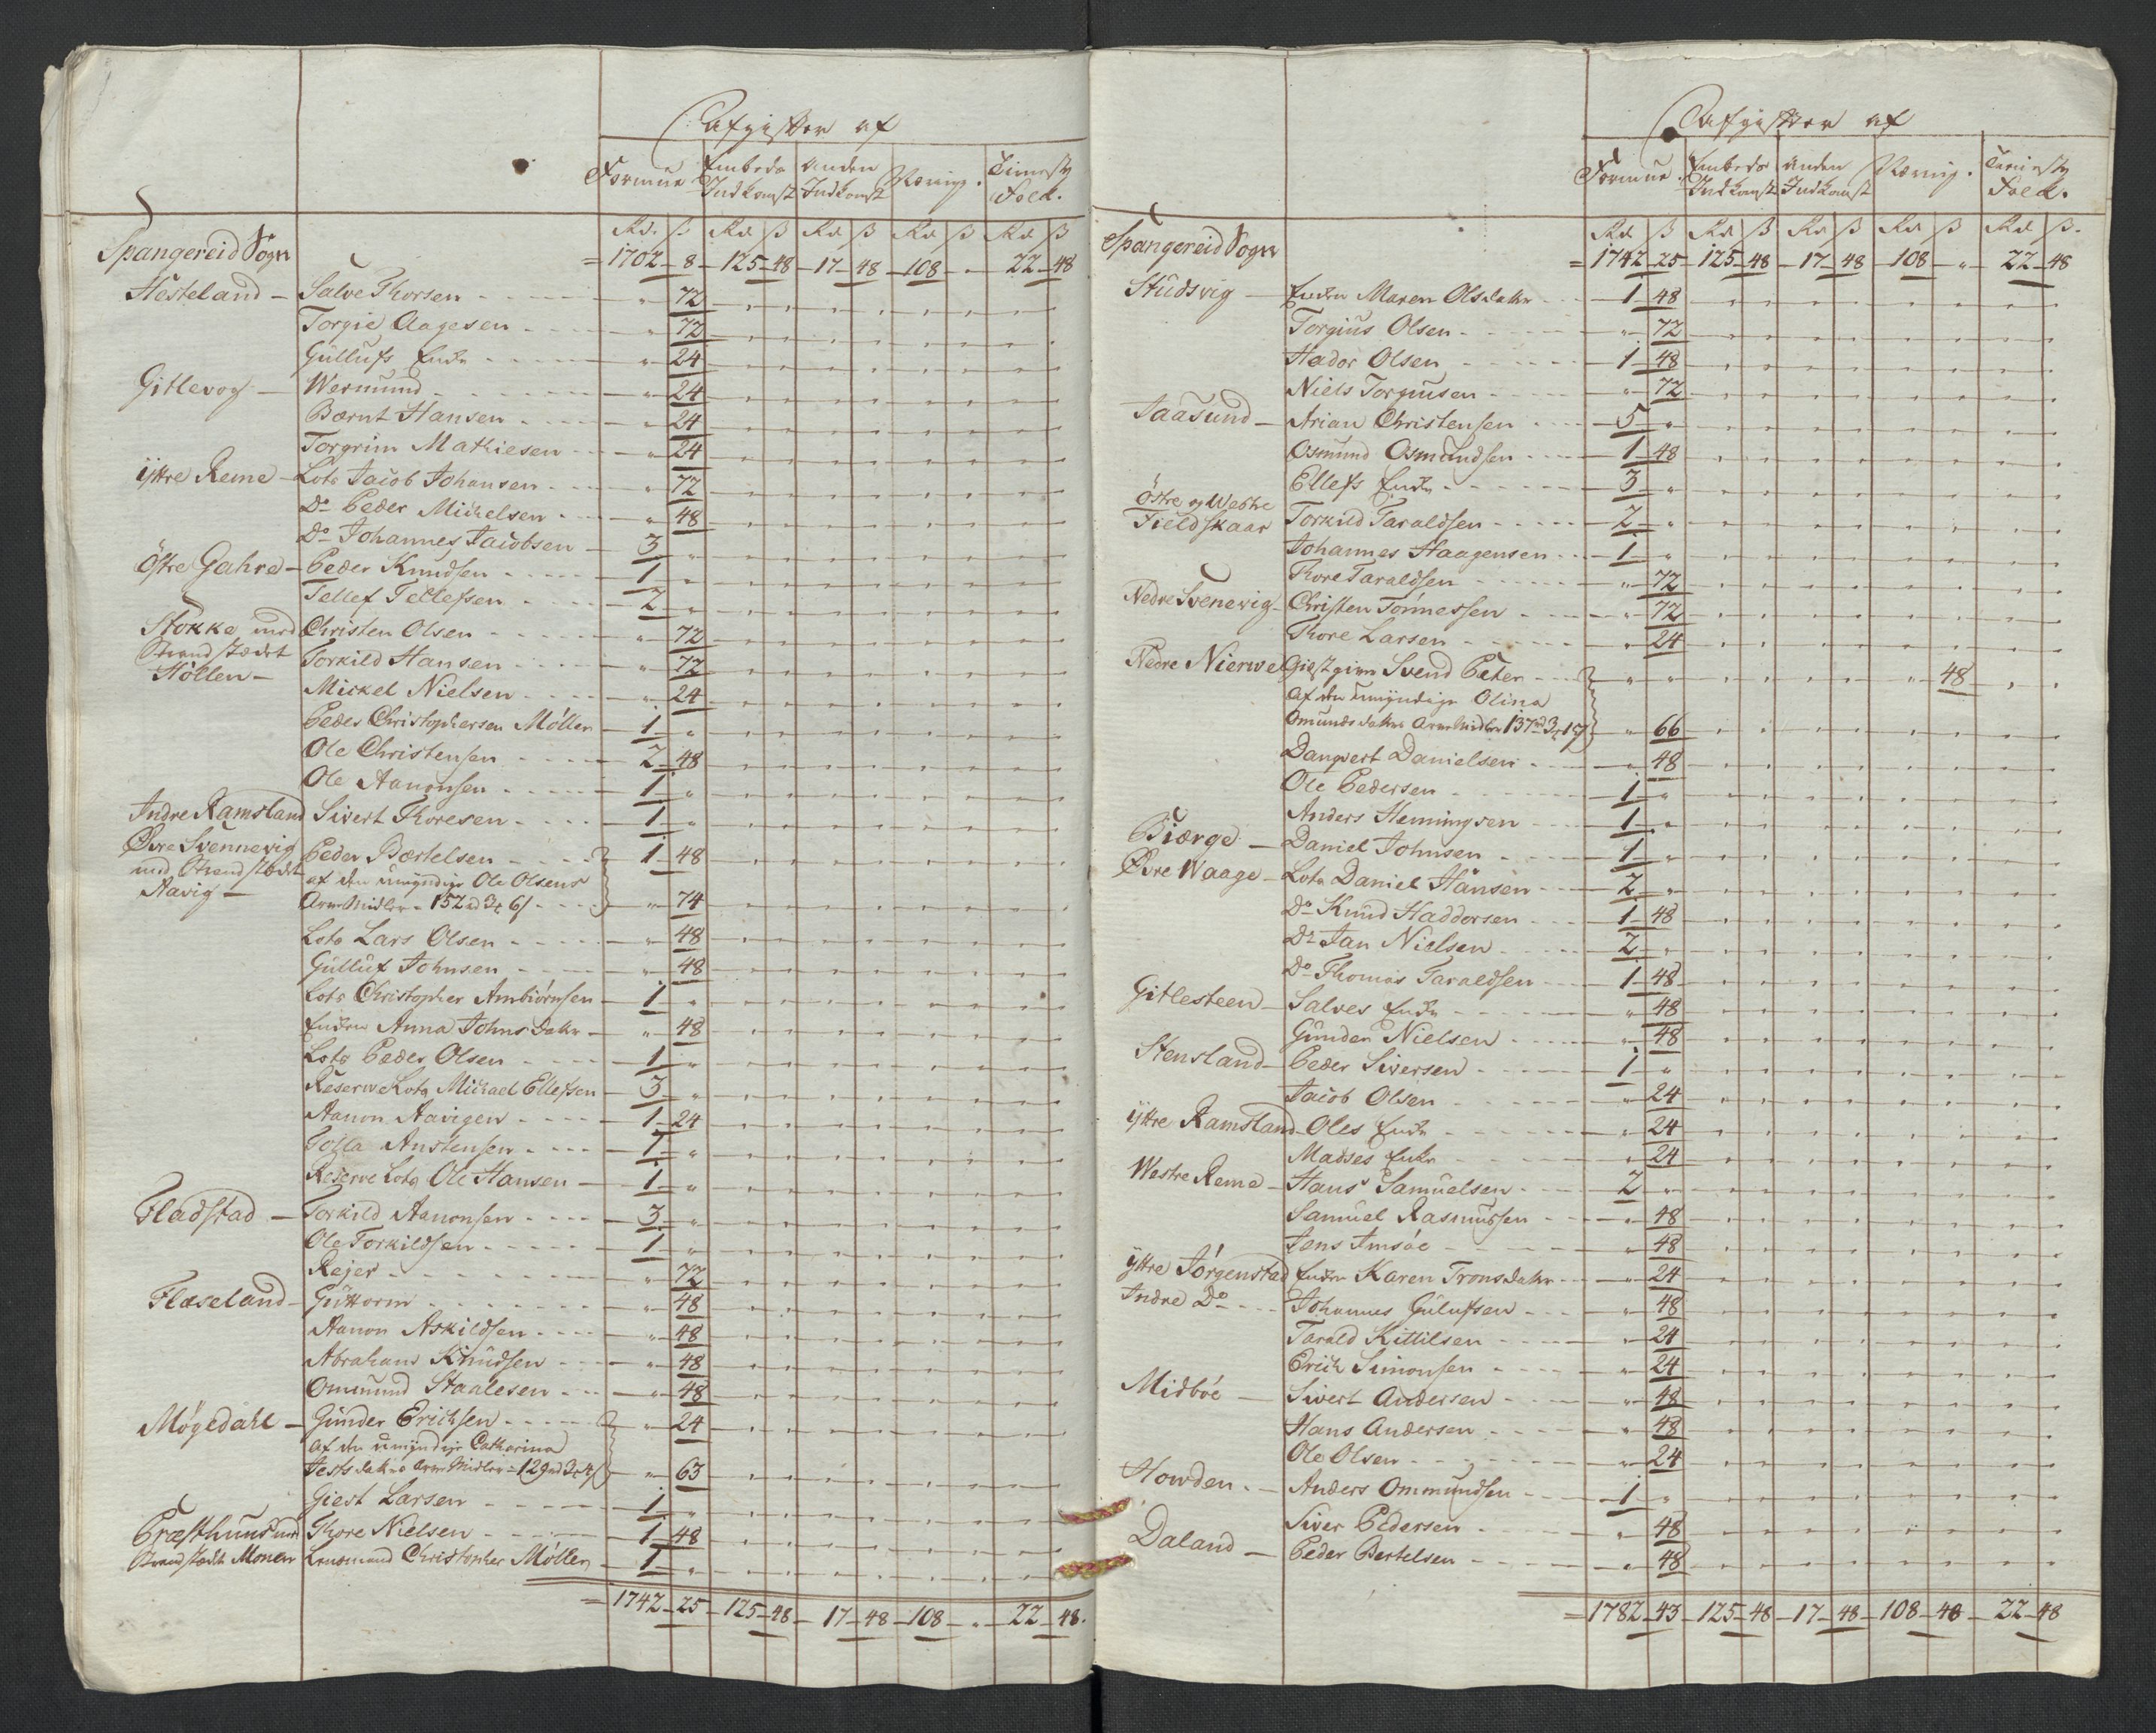 Afgifter af
Formue Embeds Indkomst Anden Indkomst Næring. Tieniste Folk.
Rd. ß Rd ß Rd ß Rd ß Rd ß
Spangereid Sogn = 1702 - 8 - 125 - 48 - 17 - 48 - 108 - " - 22 - 48
Hesteland - Salve Thorsen - " - 72
Torgie Aagesen - " - 72
Gullufs Enke - " - 24
Gitlevog - Wermund - " - 24
Bærnt Hansen - " - 24
Torgrim Mathiesen - " - 24
Ÿttre Reme - Lods Jacob Johansen - " - 72
Do Peder Michelsen - " - 48
Do Johannes Jacobsen - 3 - "
Östre Gahre - Peder Knudsen - 1 - "
Tellef Tellefsen - 2 - "
Stokke med Christen Olsen - " - 72
Strandstædet Torkild Hansen - " - 72
Høllen - Mickel Nielsen - " - 24
Peder Christophersen Møller - 1 - "
Ole Christensen - 2 - 48
Ole Aanonsen - 1 - "
Indre Ramsland Sivert Thoresen - 1 - "
Øvre Svennevig Peder Bærtelsen - 1 - 48
med Strandstædet af den umyndige Ole Olsens
Aavig - Arve Midler - 152 rd 3 ort 6 ß - " - 74
Lods Lars Olsen - " - 48
Gulluf Johnsen - " - 48
Lods Christopher Ambiørnsen - 1 - "
Enken Anna Johnsdatter - " - 48
Lods Peder Olsen - 1 - "
Reserve Lods Michael Ellefsen - 3 - "
Aanon Aavigen - 1 - 24
Tolla Anstensen - 1 - "
Reserve Lods Ole Hansen - 1 - "
Fladstad - Torkild Aanonsen - 3 - "
Ole Torkildsen - 1 - "
Rejer - " - 72
Flaseland - Guttorm - " - 48
Aanon Askildsen - " - 48
Abraham Knudsen - " - 48
Ommund Staalesen - " - 48
Møgedahl - Gunder Erichsen - " - 24
af den umyndige Catharina
datter Arve Midler = 129 rd 3 ort 4 ß - " - 63
Giert Larsen - 1 - "
Præsthuus med Thore Nielsen - 1 - 48
Strandstædet Monen Lensmand Christopher Møller - 1 - "
= 1742 - 25 - 125 - 48 - 17 - 48 - 108 - " - 22 - 48.
Afgifter af
Formue. Embeds Indkomst Anden Indkomst Næring. Tieniste Folk.
Rd ß Rd ß Rd ß Rd ß Rd ß.
Spangereid Sogn = 1742 - 25 - 125 - 48 - 17 - 48 - 108 - " - 22 - 48
Studsvig - Enken Maren Olsdatter - 1 - 48
Torgius Olsen - " - 72
Hador Olsen - 1 - 48
Niels Torgiusen - " - 72
Jaasund - Arian Christensen - 5 - "
Osmund Osmundsen - 1 - 48
Ellefs Enke - 3 - "
Östre og Westre
Fieldskaar Torkild Taraldsen - 2 - "
Johannes Haagensen - 1 - "
Thore Taraldsen - " - 72
Nedre Svenevig - Christen Tønnessen - " - 72
Thore Larsen - " - 24
Nedre Nierve Giestgiver Svend Peter - " - " - 48
af den umyndige Olina
Omundsdatters Arve Midler 137 rd 3 ort 15 ß - " - 66
Dangvert Danielsen - " - 48
Ole Pedersen - 1 - "
Anders Hemingsen - 1 - "
Biærge - Daniel Johnsen - 1 - "
Øvre Waage - Lods Daniel Hansen - 2 - "
Do Knud Haddorsen - 1 - 48
Do Jan Nielsen - 2 - "
Do Thomas Taraldsen - 1 - 48
Gitlesteen - Salves Enke - " - 48
Gunder Nielsen - " - 48
Stensland - Peder Siversen - 1 - "
Jacob Olsen - " - 24
Ÿttre Ramsland - Oles Enke - " - 24
Madses Enke - " - 24
Westre Reme - Hans Samuelsen - 2 - "
Samuel Rasmussen - " - 48
Jens Amsøe - " - 48
Ÿttre Jørgenstad Enken Karen Tronsdatter - " - 24
Indre Do - Johannes Gulufsen - " - 48
Tarald Kittilsen - " - 24
Erich Simonsen - " - 24
Midbøe - Sivert Andersen - " - 48
Hans Andersen - " - 48
Ole Olsen - " - 24
Howden. - Anders Ommundsen - 1 - "
Siver Pedersen - " - 48
Daland - Peder Bertelsen - " - 48
= 1782 - 43 - 125 - 48 - 17 - 48 - 108 - 48 - 22 - 48